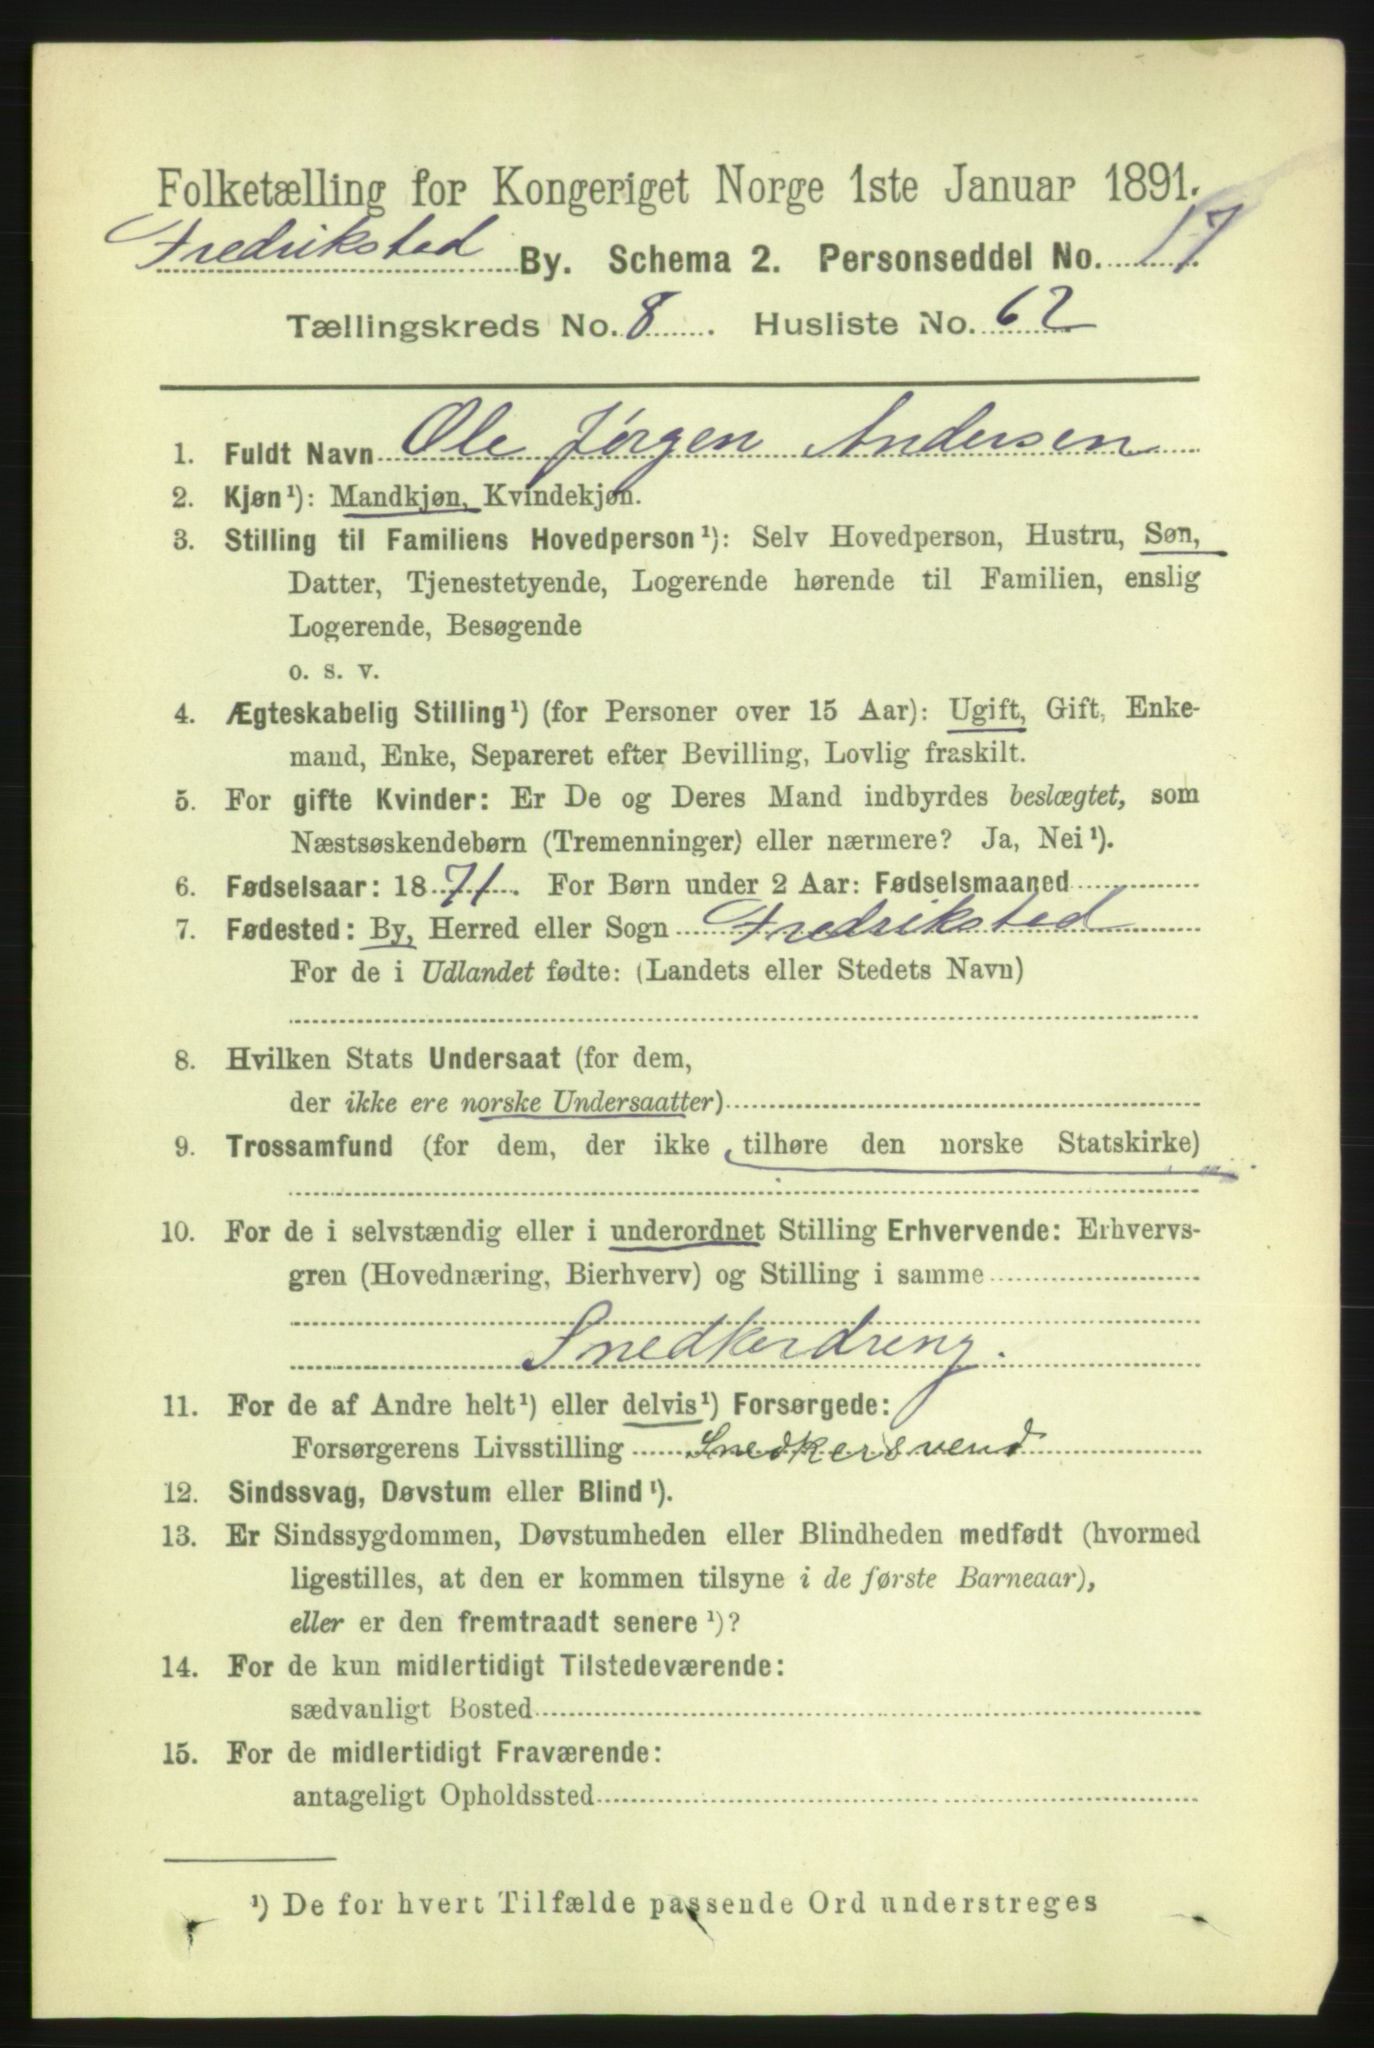 Folketælling for Kongeriget Norge 1ste Januar 1891.
Fredrikstad By. Schema 2. Personseddel No. 17
Tællingskreds No. 8. Husliste No. 62
1. Fuldt Navn Ole Jørgen Andersen
2. Kjøn¹): Mandkjøn, Kvindekjøn.
3. Stilling til Familiens Hovedperson¹): Selv Hovedperson, Hustru, Søn,
Datter, Tjenestetyende, Logerende hørende til Familien, enslig
Logerende, Besøgende
o. s. v.
4. Ægteskabelig Stilling¹) (for Personer over 15 Aar): Ugift, Gift, Enke-
mand, Enke, Separeret efter Bevilling, Lovlig fraskilt.
5. For gifte Kvinder: Er De og Deres Mand indbyrdes beslægtet, som
Næstsøskendebørn (Tremenninger) eller nærmere? Ja, Nei¹).
6. Fødselsaar: 1871. For Børn under 2 Aar: Fødselsmaaned
7. Fødested: By, Herred eller Sogn Fredrikstad
For de i Udlandet fødte: (Landets eller Stedets Navn)
8. Hvilken Stats Undersaat (for dem,
der ikke ere norske Undersaatter)
9. Trossamfund (for dem, der ikke tilhøre den norske Statskirke)
10. For de i selvstændig eller i underordnet Stilling Erhvervende: Erhvervs-
gren (Hovednæring, Bierhverv) og Stilling i samme
Snedkerdreng.
11. For de af Andre helt¹) eller delvis¹) Forsørgede:
Forsørgerens Livsstilling Snedkersvend
12. Sindssvag, Døvstum eller Blind¹).
13. Er Sindssygdommen, Døvstumheden eller Blindheden medfødt (hvormed
ligestilles, at den er kommen tilsyne i de første Barneaar),
eller er den fremtraadt senere¹)?
14. For de kun midlertidigt Tilstedeværende:
sædvanligt Bosted
15. For de midlertidigt Fraværende:
antageligt Opholdssted
¹) De for hvert Tilfælde passende Ord understreges